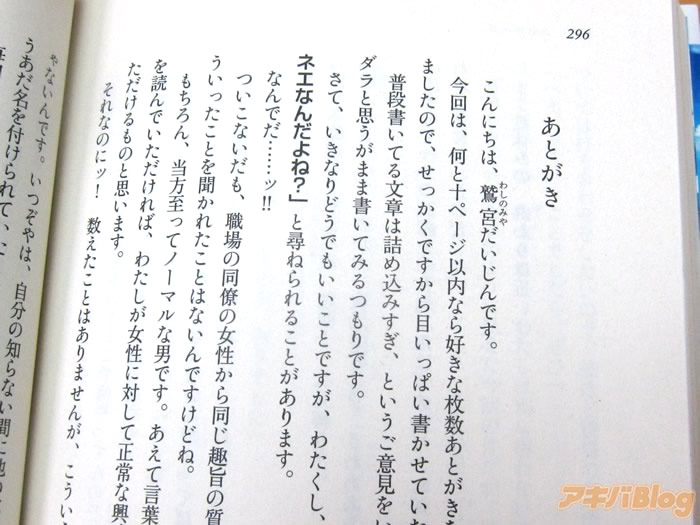 296
あとがき
こんにちは、鷲宮だいじんです。
わしのみや
今回は、何と十ページ以内なら好きな枚数あとがきを
ましたので、せっかくですから目いっぱい書かせていな
普段書いてる文章は詰め込みすぎ、というご意見をい
ダラと思うがまま書いてみるつもりです。
さて、いきなりどうでもいいことですが、わたくし、
ネエなんだよね?」と尋ねられることがあります。
なんでだ……ッ!!
ついこないだも、職場の同僚の女性から同じ趣旨の質
ういったことを聞かれたことはないんですけどね。
もちろん、当方至ってノーマルな男です。あえて言葉
を読んでいただければ、わたしが女性に対して正常な興
ただけるものと思います。
それなのにッ! 数えたことはありませんが、こうい
やないんです。いつぞやは、自分の知らない間に地
うあだ名を付けられていた
アキバBlog